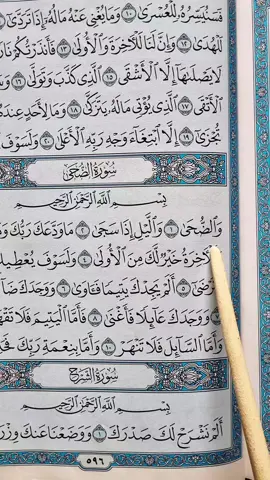 فَسَنُيَسِّرُهُۥ لِلْعُسْرَىٰ ١٠ وَمَا يُغْنِى عَنْهُ مَالُهُۥٓ إِذَا تَرَدَّىٰٓ
لَلْهُدَىٰ ١٢ وَإِنَّ لَنَا لَلْءَاخِرَةَ وَٱلْأُولَىٰ ١٣ فَأَنذَرْتُكُمْ نَارًا
لَا يَصْلَىٰهَآ إِلَّا ٱلْأَشْقَى ١٥ ٱلَّذِى كَذَّبَ وَتَوَلَّىٰ ١٦
ٱلْأَتْقَى ١٧ ٱلَّذِى يُؤْتِى مَالَهُۥ يَتَزَكَّىٰ ١٨ وَمَا لِأَحَدٍ عِندَهُۥ
تُجْزَىٰٓ ١٩ إِلَّا ٱبْتِغَآءَ وَجْهِ رَبِّهِ ٱلْأَعْلَىٰ ٢٠ وَلَسَوْفَ
سُورَةُ الضُّحَىٰ
بِسْمِ ٱللَّهِ ٱلرَّحْمَٰنِ ٱلرَّحِيمِ
وَٱلضُّحَىٰ ١ وَٱلَّيْلِ إِذَا سَجَىٰ ٢ مَا وَدَّعَكَ رَبُّكَ
خَيْرٌ لَّكَ مِنَ ٱلْأُولَىٰ ٤ وَلَسَوْفَ يُعْطِيكَ
٥ أَلَمْ يَجِدْكَ يَتِيمًا فَـَٔاوَىٰ ٦ وَوَجَدَكَ
وَوَجَدَكَ عَآئِلًا فَأَغْنَىٰ ٨ فَأَمَّا ٱلْيَتِيمَ فَلَا تَقْهَرْ
وَأَمَّا ٱلسَّآئِلَ فَلَا تَنْهَرْ ١٠ وَأَمَّا بِنِعْمَةِ رَبِّكَ
سُورَةُ الشَّرْحِ
بِسْمِ ٱللَّهِ ٱلرَّحْمَٰنِ ٱلرَّحِيمِ
أَلَمْ نَشْرَحْ لَكَ صَدْرَكَ ١ وَوَضَعْنَا عَنكَ وِزْرَكَ
٥٩٦